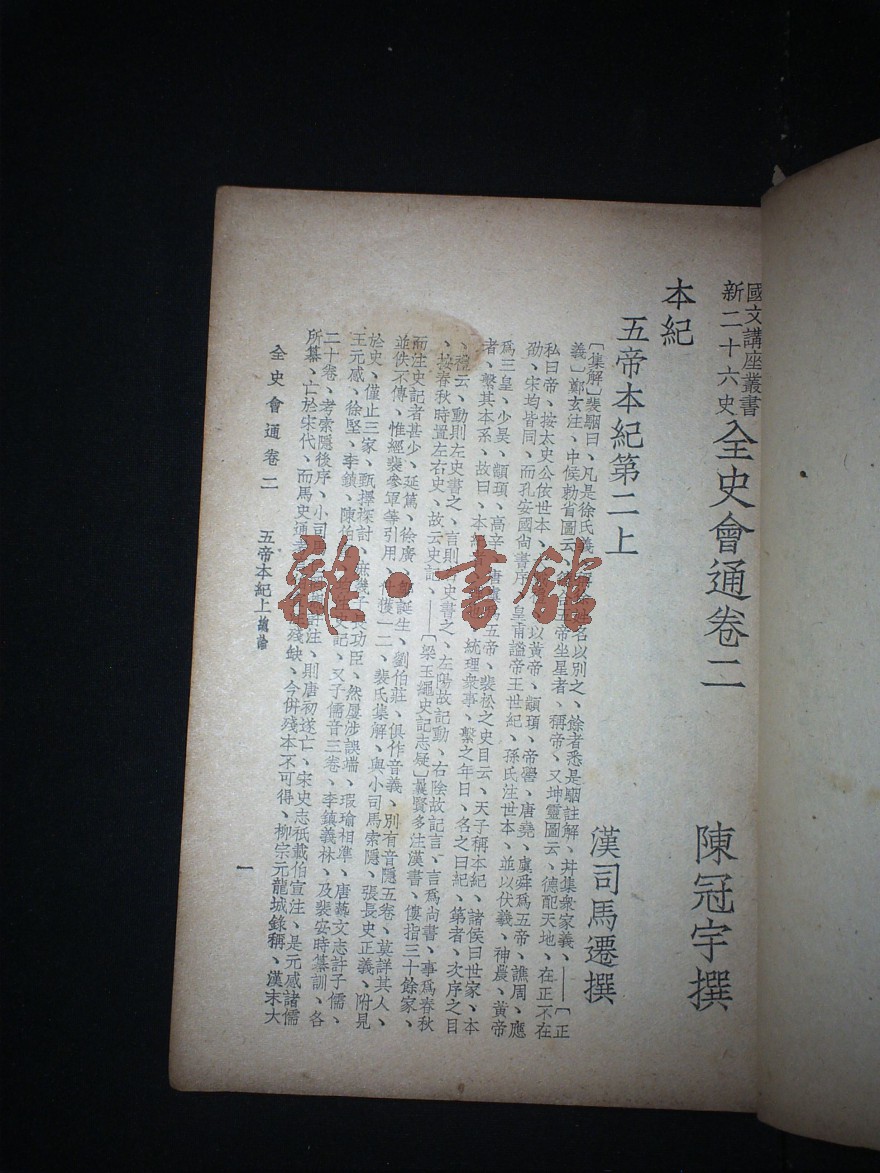 國文講座叢書
新二十六史
全史會通卷二
陳冠宇撰
本紀
五帝本紀第二上
漢司馬遷撰
〔集解〕裴駰曰、凡是徐氏義、稱徐姓名以別之、餘者悉是駰註解、幷集衆家義、——〔正
義〕鄭玄注、中候勅省圖云、五帝坐星者、稱帝、又坤靈圖云、德配天地、在正不在
私曰帝、按太史公依世本、以黃帝、顓頊、帝嚳、唐堯、虞舜爲五帝、譙周、應
劭、宋均皆同、而孔安國尚書序、皇甫謐帝王世紀、孫氏注世本、並以伏羲、神農、黃帝
爲三皇、少昊、顓頊、高辛、唐虞爲五帝、裴松之史目云、天子稱本紀、諸侯曰世家、本
者、繫其本系、故曰、本、統理衆事、繫之年日、名之曰紀、第者、次序之目
、禮云、動則左史書之、言則右史書之、左陽故記動、右陰故記言、言爲尚書、事爲春秋
、按春秋時置左右史、故云史記、——〔梁玉繩史記志疑〕曩賢多注漢書、僂指三十餘家、
而注史記者甚少、延篤、徐廣、鄒誕生、劉伯莊、俱作音義、別有音隱五卷、莫詳其人、
並佚不傳、惟經裴參軍等引用、什獲一二、裴氏集解、與小司馬索隱、張長史正義、附見
於史、僅止三家、甄擇探討、庶幾子長功臣、然屢涉誤端、瑕瑜相準、唐藝文志許子儒、
王元感、徐堅、李鎮、陳伯宣史記、又子儒音三卷、李鎮義林、及裴安時纂訓、各
二十卷、考索隱後序、小司注、則唐初遂亡、宋史志祇載伯宣注、是元感諸儒
所纂、亡於宋代、而馬史通殘缺、今倂殘本不可得、柳宗元龍城錄稱、漢末大
全史會通卷二　五帝本紀上
一
雜·書館